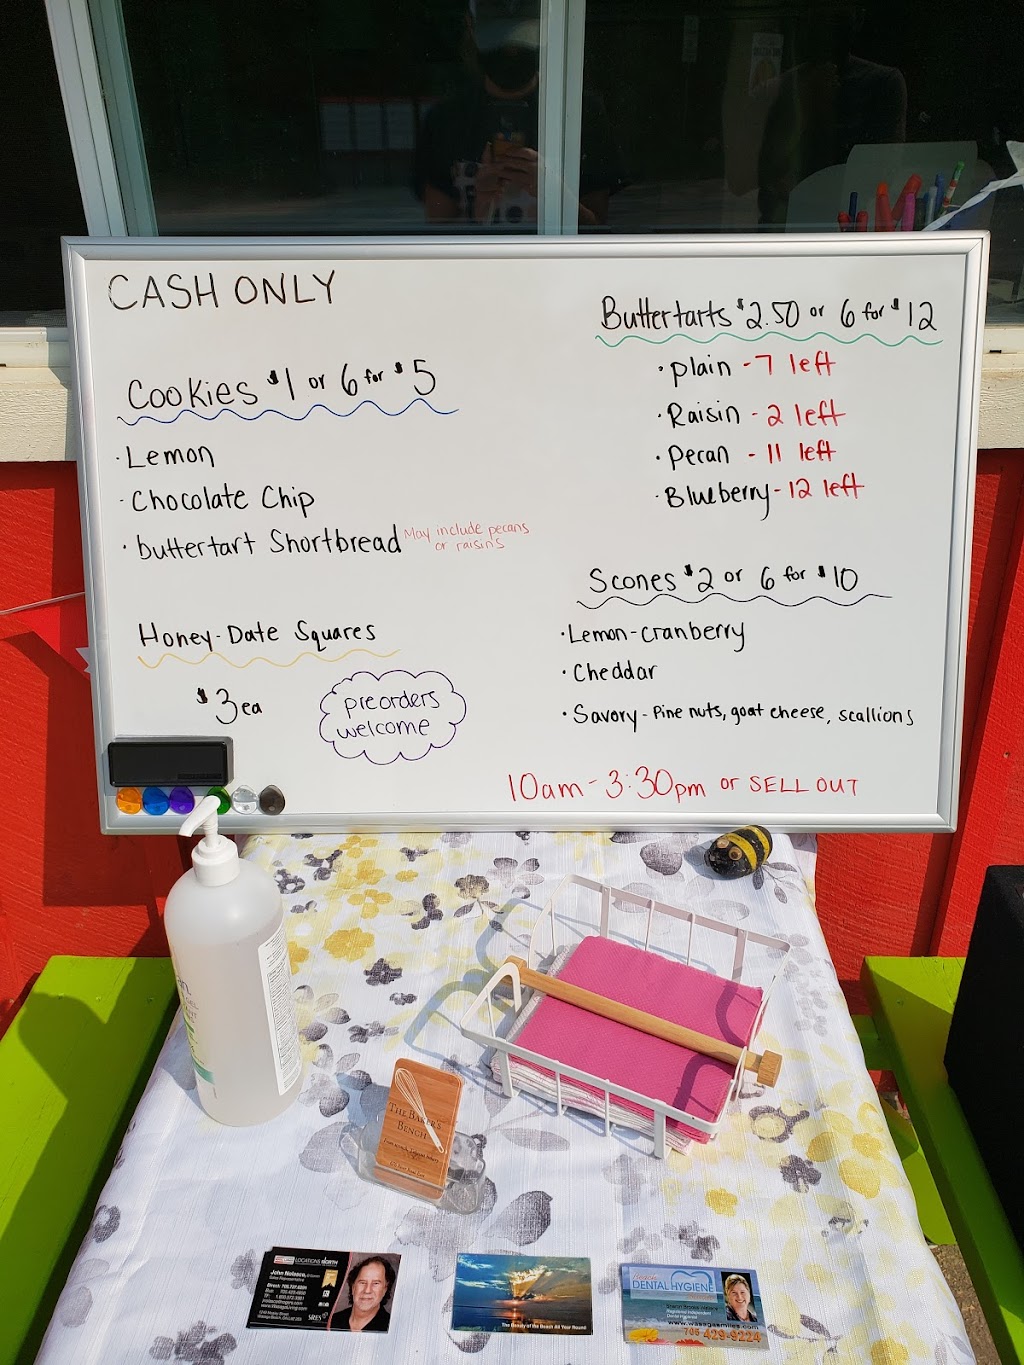 CASH ONLY
Cookies $1 or 6 for $5
· Lemon
· Chocolate Chip
· buttertart Shortbread May include pecans
or raisins
Honey-Date Squares
$3 ea
preorders
welcome
Buttertarts $2.50 or 6 for $12
· plain - 7 left
· Raisin - 2 left
· Pecan - 11 left
· Blueberry - 12 left
Scones $2 or 6 for $10
· Lemon-cranberry
· Cheddar
· Savory - Pine nuts, goat cheese, scallions
10am - 3:30pm or SELL OUT
THE BAKER'S
BENCH
LOCATIONS NORTH
John Nelsson
Sales Representative
The Beauty of the Beach All Year Round
DENTAL HYGIENE
705 429-9224